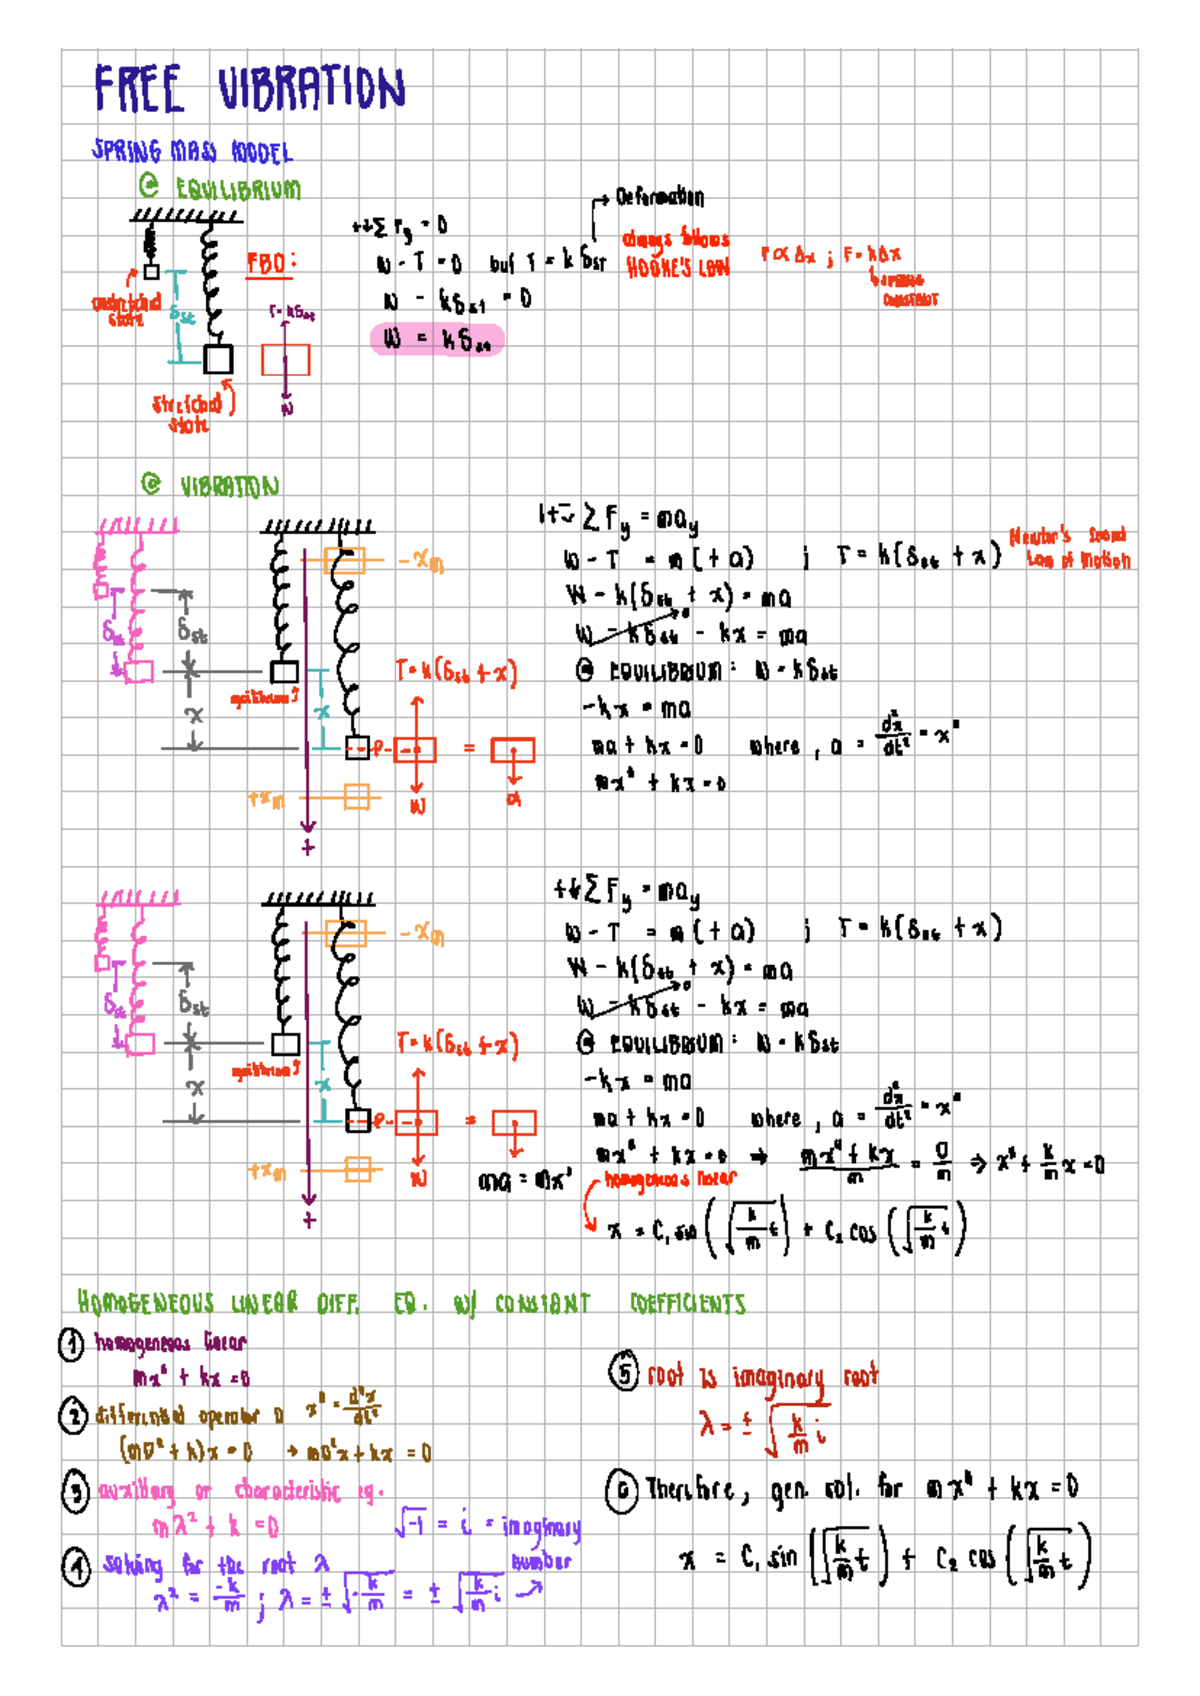 FREE VIBRATION
SPRING MASS MODEL
@ EQUILIBRIUM
unstretched state
δst
stretched state
FBD:
T = kδst
W
+↓ΣFy = 0
W - T = 0 but T = kδst
→ Deformation
always follows HOOKE'S LAW
F ∝ Δx ; F = kΔx
↳ spring constant
W - kδst = 0
W = kδst
@ VIBRATION
δst
δst
x
equilibrium
x
-xm
+xm
+
T = k(δst + x)
P
=
W
a
+↓ ΣFy = may
W - T = m(+a) ; T = k(δst + x)
Newton's Second Law of Motion
W - k(δst + x) = ma
W - kδst - kx = ma
@ EQUILIBRIUM: W = kδst
-kx = ma
ma + kx = 0 where, a = d²x/dt² = x"
mx" + kx = 0
δst
δst
x
equilibrium
x
-xm
+xm
+
T = k(δst + x)
P
=
W
ma = mx"
+↓ΣFy = may
W - T = m(+a) ; T = k(δst + x)
W - k(δst + x) = ma
W - kδst - kx = ma
@ EQUILIBRIUM: W = kδst
-kx = ma
ma + kx = 0 where, a = d²x/dt² = x"
mx" + kx = 0 ⇒ (mx" + kx)/m = 0/m ⇒ x" + k/m x = 0
homogeneous linear
x = C₁ sin (√(k/m) t) + C₂ cos (√(k/m) t)
HOMOGENEOUS LINEAR DIFF. EQ. W/ CONSTANT COEFFICIENTS
① homogeneous linear
mx" + kx = 0
② differential operator D x" = d²x/dt²
(mD² + k)x = 0 → mD²x + kx = 0
③ auxillary or characteristic eq.
mλ² + k = 0
√-1 = i = imaginary number
④ solving for the root λ
λ² = -k/m ; λ = ± √(-k/m) = ± √(k/m) i
⑤ root is imaginary root
λ = ± √(k/m) i
⑥ Therefore, gen. sol. for mx" + kx = 0
x = C₁ sin (√(k/m) t) + C₂ cos (√(k/m) t)